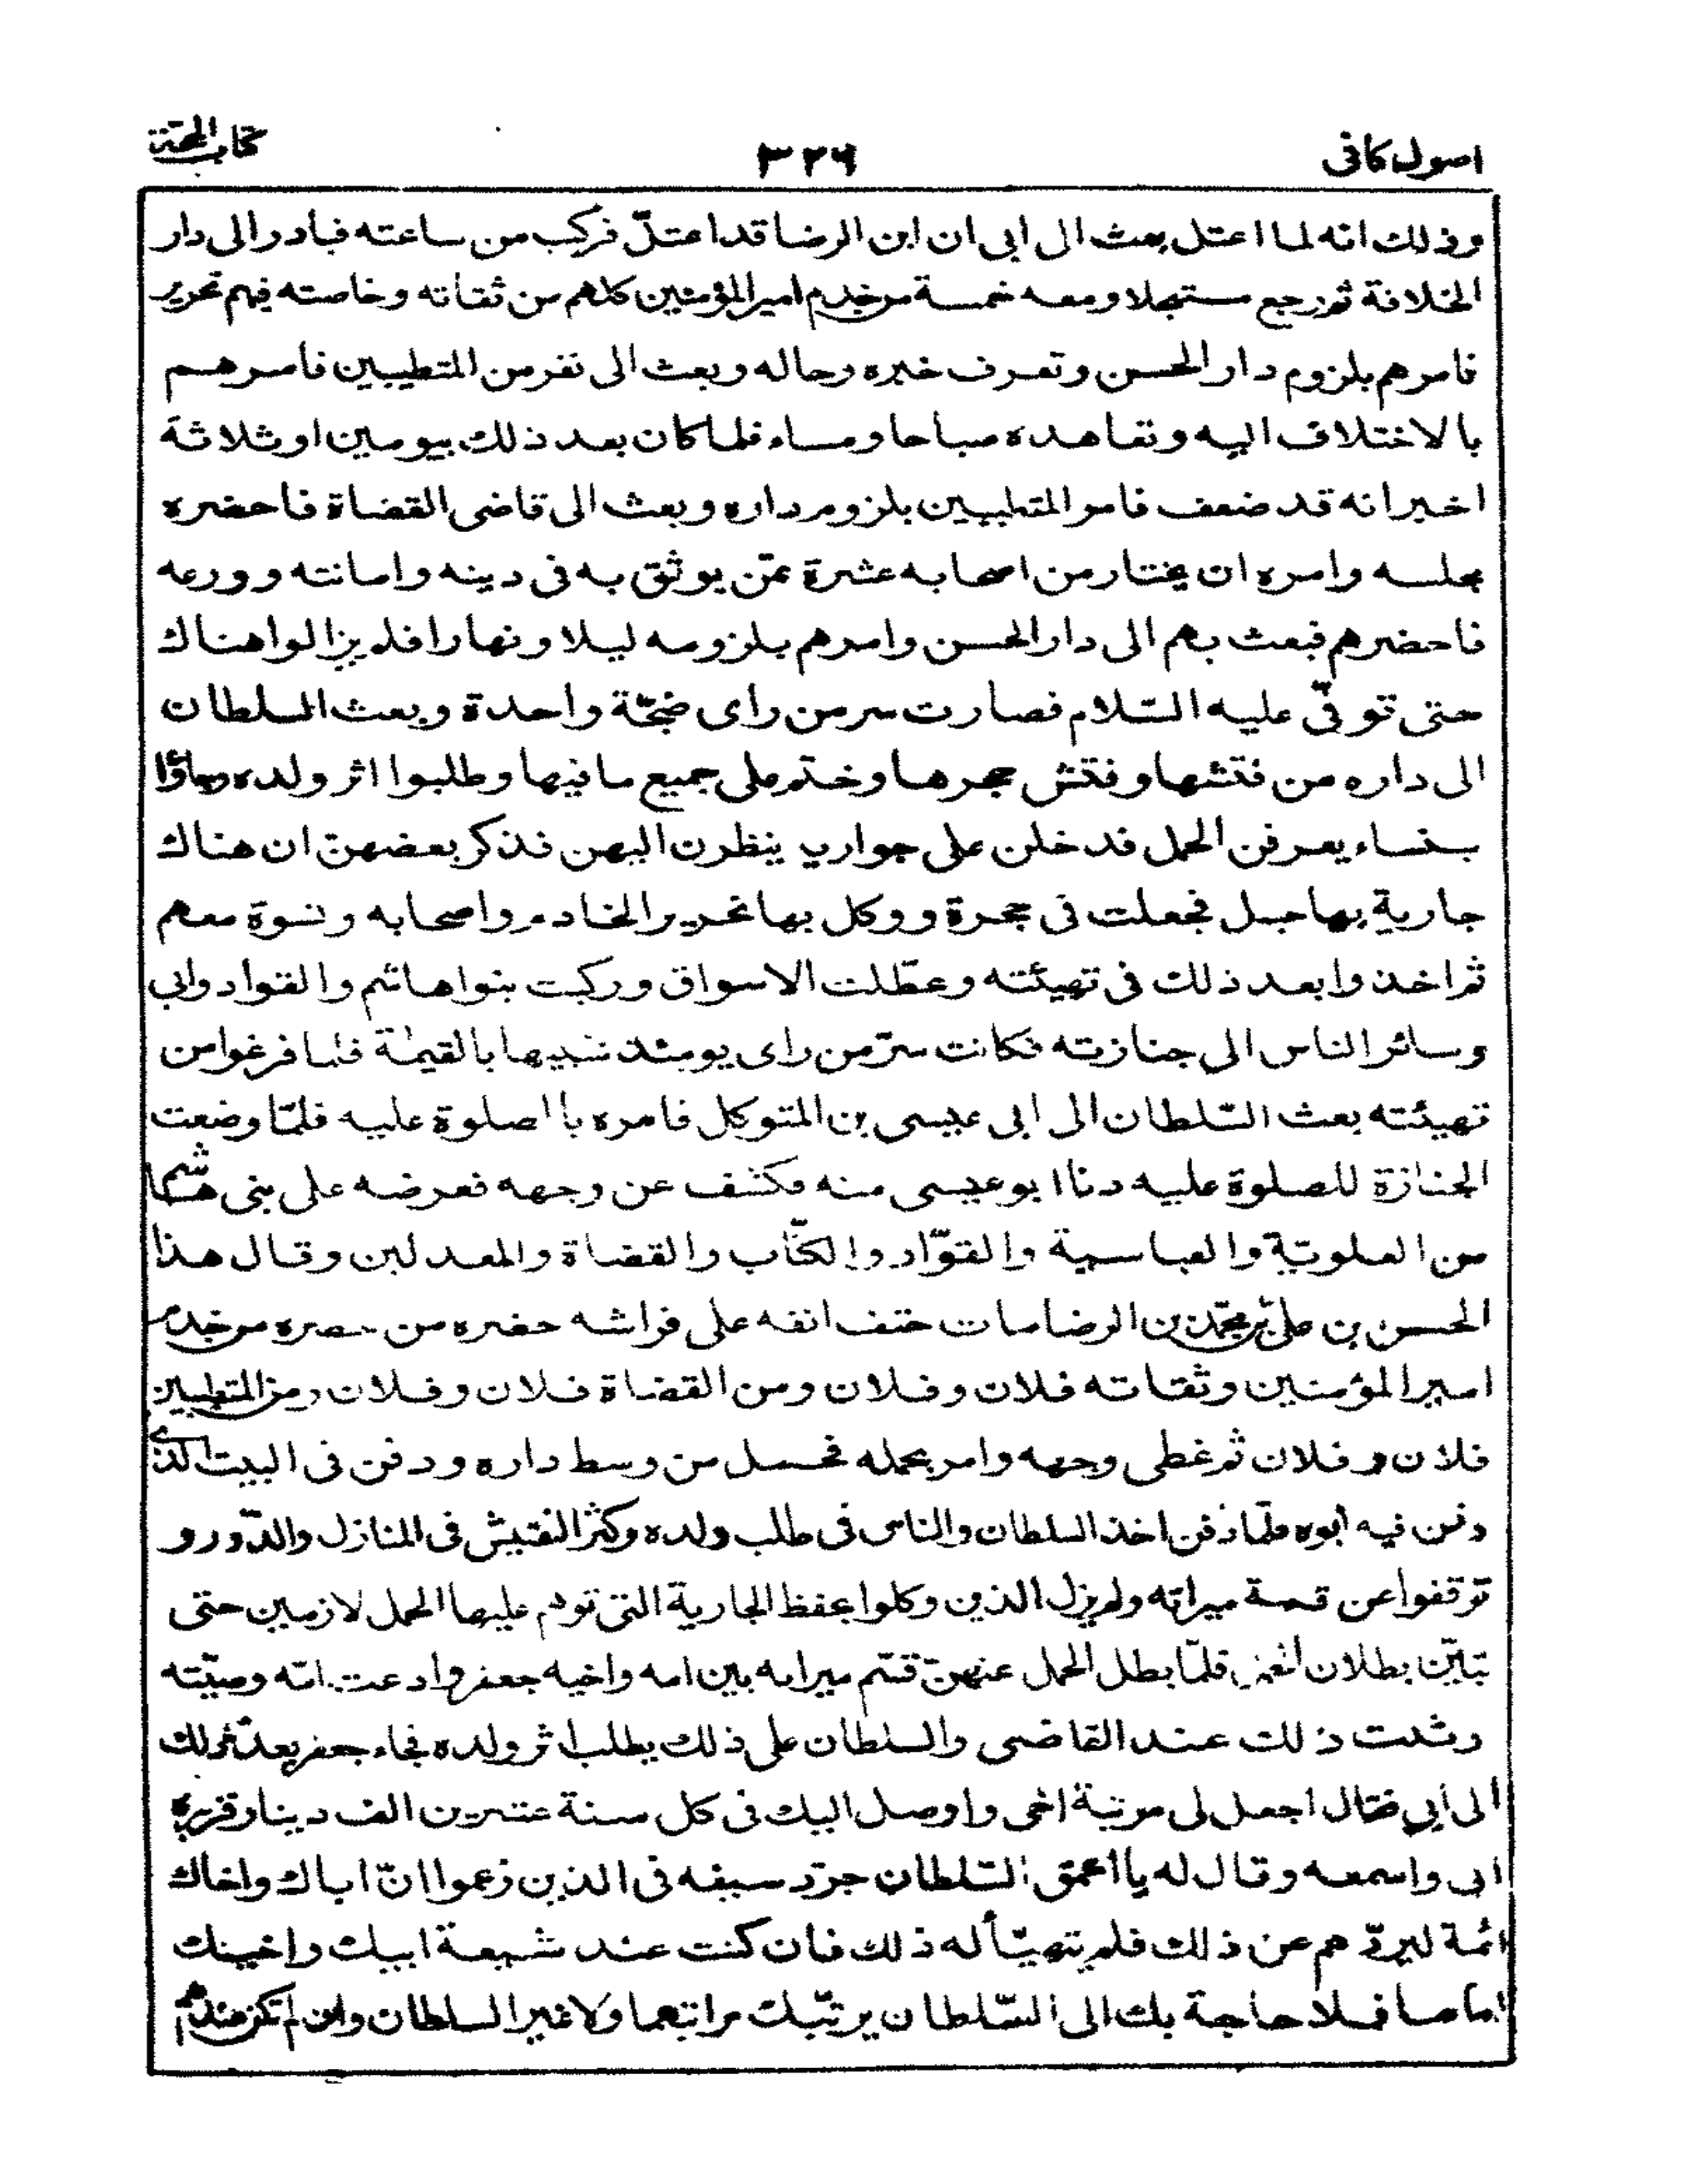 اصول كافى ٣٢٦ كتاب الحجة
وذلك انه لما اعتل بعث الى ابى ان ابن الرضا قد اعتلّ فركب من ساعته فبادر الى دار
الخلافة ثم رجع مستعجلا ومعه خمسة من خدم امير المؤمنين كلهم من ثقاته وخاصته فيهم نحرير
فامرهم بلزوم دار الحسن وتعرف خبره وحاله وبعث الى نفر من المتطببين فامرهم
بالاختلاف اليه وتعاهده صباحا ومساء فلما كان بعد ذلك بيومين او ثلاثة
اخبر انه قد ضعف فامر المتطببين بلزوم داره وبعث الى قاضى القضاة فاحضره
مجلسه وامره ان يختار من اصحابه عشرة ممّن يوثق به فى دينه وامانته وورعه
فاحضرهم فبعث بهم الى دار الحسن وامرهم بلزومه ليلا ونهارا فلم يزالوا هناك
حتى توفّى عليه السّلام فصارت سر من راى ضجّة واحدة وبعث السلطان
الى داره من فتشها وفتش حجرها وختم على جميع ما فيها وطلبوا اثر ولده وجاؤا
بنساء يعرفن الحمل فدخلن على جواريه ينظرن اليهن فذكر بعضهنّ ان هناك
جارية بها حبل فجعلت فى حجرة ووكل بها نحرير الخادم واصحابه ونسوة معهم
ثم اخذوا بعد ذلك فى تهيئته وعطّلت الاسواق وركبت بنوا هاشم والقواد وابى
وسائر الناس الى جنازته فكانت سرّ من راى يومئذ شبيها بالقيمة فلما فرغوا من
تهيئته بعث السّلطان الى ابى عيسى بن المتوكل فامره باالصلوة عليه فلمّا وضعت
الجنازة للصلوة عليه دنا ابو عيسى منه فكشف عن وجهه فعرضه على بنى هاشم
من العلويّة والعباسية والقوّاد والكتّاب والقضاة والمعدلين وقال هذا
الحسن بن علىّ بن محمّد بن الرضا مات حتف انفه على فراشه حضره من حضره من خدم
امير المؤمنين وثقاته فلان وفلان ومن القضاة فلان وفلان ومن المتطببين
فلان وفلان ثم غطى وجهه وامر بحمله فحمل من وسط داره ودفن فى البيت الذى
دفن فيه أبوه فلمّا دفن اخذ السلطان والناس فى طلب ولده وكثر التفتيش فى المنازل والدّور و
توقفوا عن قسمة ميراثه ولم يزل الذين وكلوا بحفظ الجارية التى توهم عليها الحمل لازمين حتى
تبيّن بطلان الحمل فلمّا بطل الحمل عنهنّ قسّم ميراثه بين امه واخيه جعفر وادعت امّه وصيّته
وثبت ذلك عند القاضى والسلطان على ذلك يطلب اثر ولده فجاء جعفر بعد ذلك
الى أبى فقال اجعل لى مرتبة اخى واوصل اليك فى كل سنة عشرين الف دينار فزبره
ابى واسمعه وقال له يا أحمق السّلطان جرّد سيفه فى الذين زعموا انّ اباك واخاك
ائمة ليردّهم عن ذلك فلم يتهيّأ له ذلك فان كنت عند شيعة ابيك واخيك
اماما فلا حاجة بك الى السّلطان يرتّبك مراتبهما ولا غير السلطان وان لم تكن عندهم